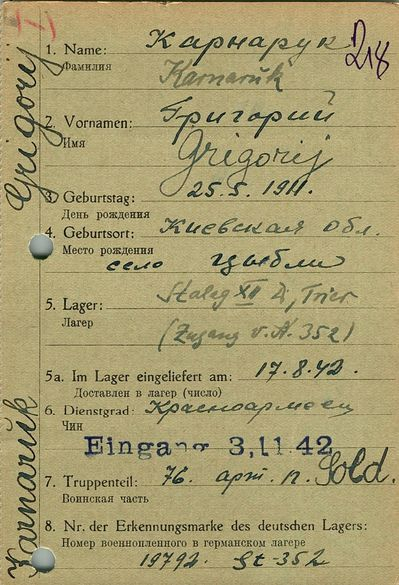 218
1. Name: Карнарук
Фамилия
Karnaruk
2. Vornamen: Григорий
Имя
Grigorij
3. Geburtstag: 25.5.1911.
День рождения
4. Geburtsort: Киевская обл.
Место рождения
село Цыбли
5. Lager: Stalag XII D, Trier
Лагерь
(Zugang v. A. 352)
5a. Im Lager eingeliefert am: 17.8.42.
Доставлен в лагер (число)
6. Dienstgrad: Красноармеец
Чин
Eingang 3.11.42
7. Truppenteil: 76. арт. п. Sold.
Воинская часть
8. Nr. der Erkennungsmarke des deutschen Lagers:
Номер военнопленного в германском лагере
19792. St-352
Karnaruk Grigorij